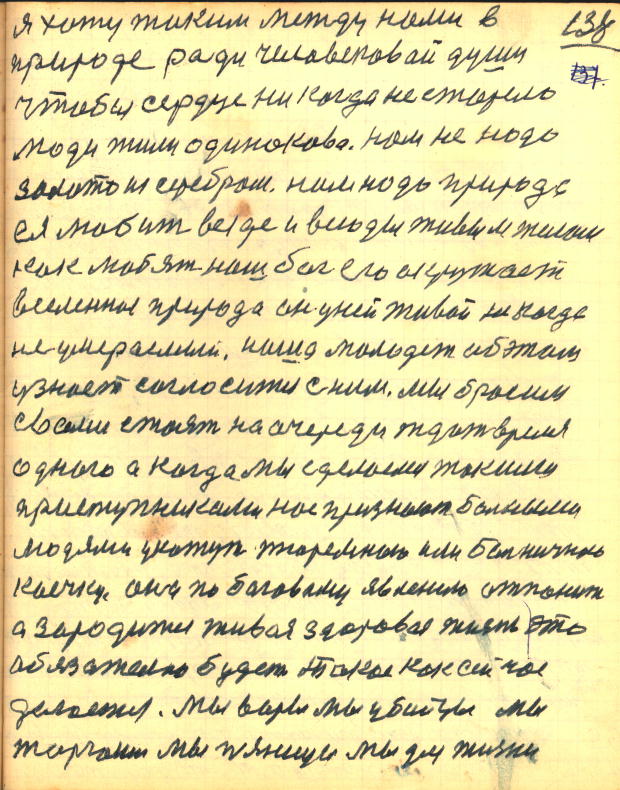 я хожу таким между нами в 138
природе ради человековай души 137.
чтобы сердце никогда не старело
люди жили одинакова. нам не надо
золото и серебром. нам надо природа
ея любит везде и всюды живым телом
как любят наш бог его окружает
вселенная природа он у ней живой никогда
не умераемый, наша молодеж обэтом
узнает согласится сним. мы бросим
своими стоят на очереди ждат время
одного а когда мы сделаемся такими
приступниками нас признают болными
людями укажут тюремною или болничною
коечку. она по боговому явлению отпонит
а зародится живая здоровая жизнь это
обязателно будет такое как сейчас
делоется. мы воры мы убийцы мы
мы пяницы мы для жизни